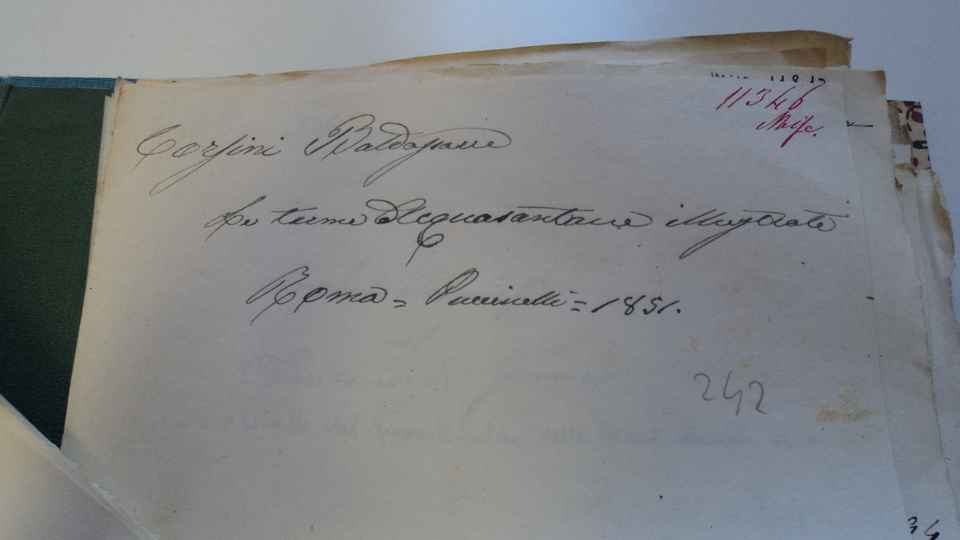 11346
Misc.
Corsini Baldassarre
Le terme d'Acquasantane illustrate
Roma = Puccinelli = 1851.
242
34